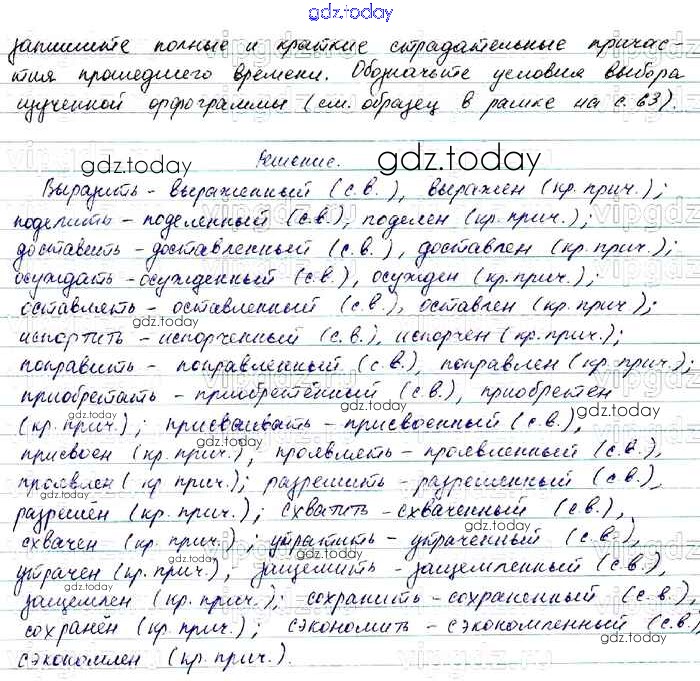 gdz.today
запишите полные и краткие страдательные причас-
тия прошедшего времени. Обозначьте условия выбора
изученной орфограммы (см. образец в рамке на с. 63).
gdz.today Решение. gdz.today
Выразить - выраженный (с.в.), выражен (кр. прич.);
поделить - поделенный (с.в.), поделен (кр. прич.);
доставить - доставленный (с.в.), доставлен (кр. прич.);
осуждать - осужденный (с.в.), осужден (кр. прич.);
оставлять - оставленный (с.в.), оставлен (кр. прич.);
gdz.today
испортить - испорченный (с.в.), испорчен (кр. прич.);
поправить - поправленный (с.в.), поправлен (кр. прич.);
приобретать - приобретённый (с.в.), приобретен
gdz.today gdz.today
(кр. прич.); присваивать - присвоенный (с.в.),
gdz.today
присвоен (кр. прич.); проявлять - проявленный (с.в.),
проявлен (кр прич.); разрешить - разрешенный (с.в.),
gdz.today
разрешён (кр. прич.); схватить - схваченный (с.в.),
gdz.today
схвачен (кр. прич.); утратить - утраченный (с.в.),
gdz.today
утрачен (кр. прич.), защемить - защемленный (с.в.),
gdz.today
защемлен (кр. прич.); сохранить - сохраненный (с.в.),
сохранён (кр. прич.); сэкономить - сэкономленный (с.в.)
gdz.today
сэкономлен (кр. прич.).
gdz.today